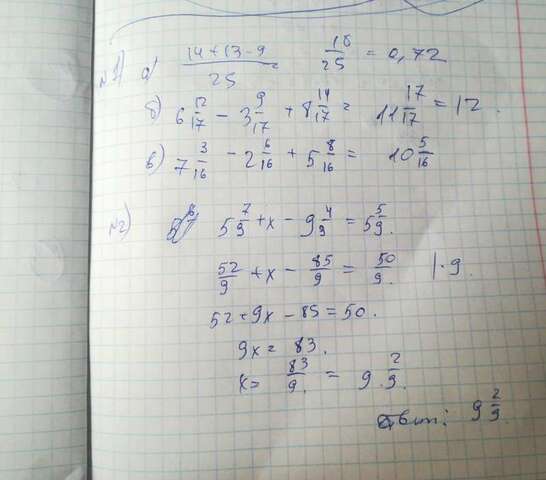 №1) а) (14+13-9)/25 18/25 = 0,72
б) 6 12/17 - 3 9/17 + 8 14/17 = 11 17/17 = 12.
в) 7 3/16 - 2 6/16 + 5 8/16 = 10 5/16
№2) 5 7/9 + x - 9 4/9 = 5 5/9.
52/9 + x - 85/9 = 50/9. |·9.
52+9x-85=50.
9x = 83.
x = 83/9 = 9 2/9.
Ответ: 9 2/9.